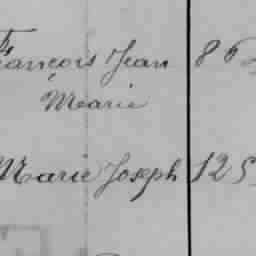 François Jean 86
Méarie
Marie Joseph 125